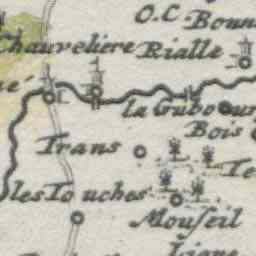 O.C. Bonn
Chauveliere Rialle
né
la Gubo
Bois
Trans
Te
les Touches
Mouseil
Ligne